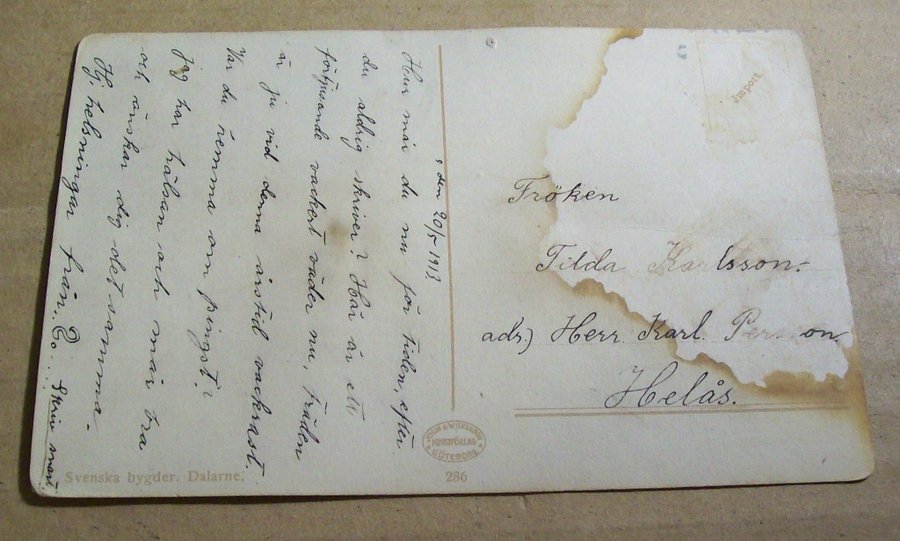 den 20/5 1913
Hur mår du nu för tiden, efter
du aldrig skriver? Här är ett
förtjusande vackert väder nu, träden
är ju vid denna årstid vackrast.
Var du hemma om pingst?
Jag har hälsan och mår bra
och önskar dig det samma.
Hj. helsningar från.
Skriv snart
Fröken
Tilda Karlsson.
adr.) Herr. Karl.
Helås.
Import.
KONSTFÖRLAG
GÖTEBORG
Svenska bygder. Dalarne.
286